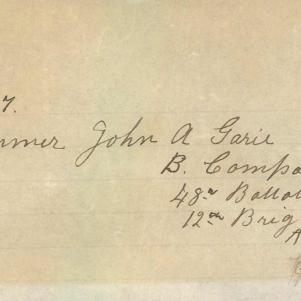 7.
mmer John A Garie
B. Compa
48th Battal
12th Brig
A